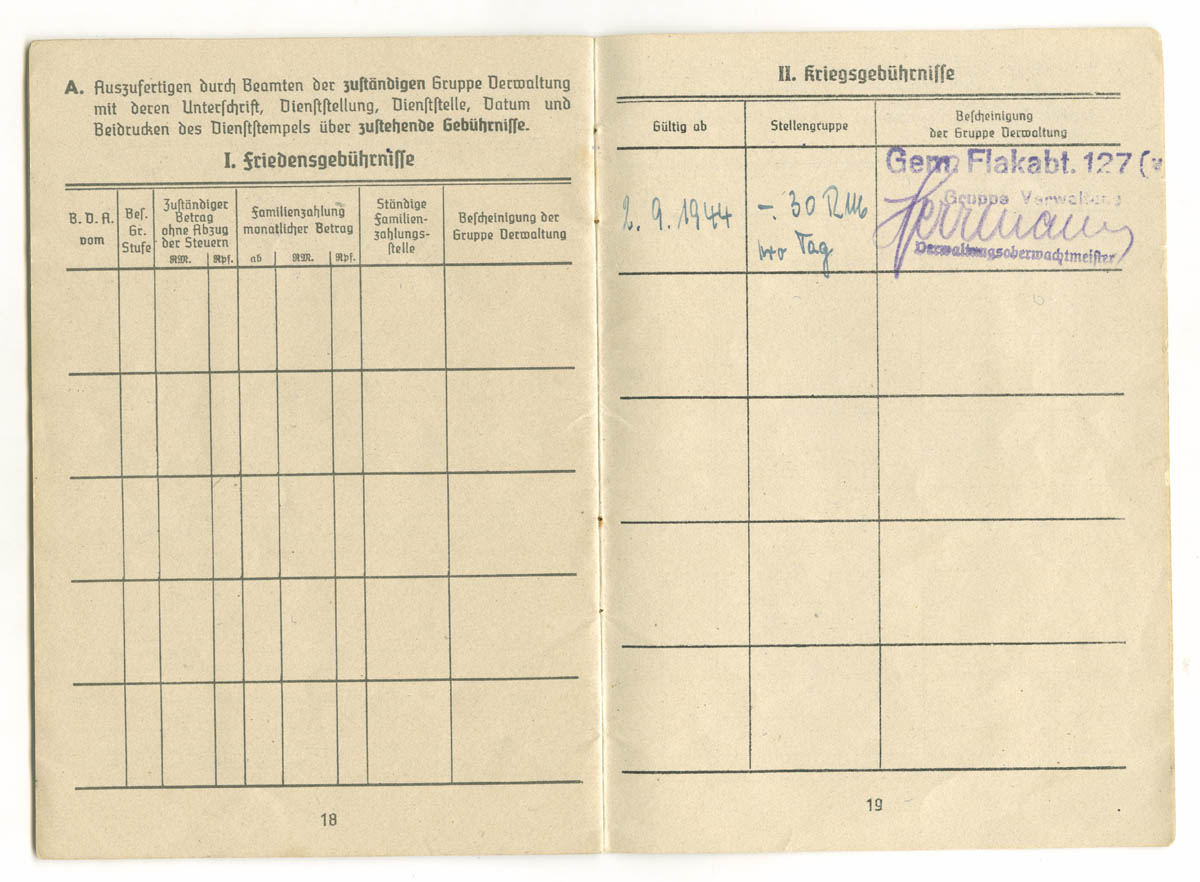 A. Auszufertigen durch Beamten der zuständigen Gruppe Verwaltung
mit deren Unterschrift, Dienststellung, Dienststelle, Datum und
Beidrucken des Dienststempels über zustehende Gebührnisse.
I. Friedensgebührnisse
B. D. A.
vom
Bes.
Gr.
Stufe
Zuständiger
Betrag
ohne Abzug
der Steuern
RM.
Rpf.
Familienzahlung
monatlicher Betrag
ab
RM.
Rpf.
Ständige
Familien-
zahlungs-
stelle
Bescheinigung der
Gruppe Verwaltung
18
II. Kriegsgebührnisse
Gültig ab
Stellengruppe
Bescheinigung
der Gruppe Verwaltung
2. 9. 1944
-. 30 RM
pro Tag
Gem. Flakabt. 127 (v
Gruppe Verwaltung
Herrmann
Verwaltungsoberwachtmeister
19